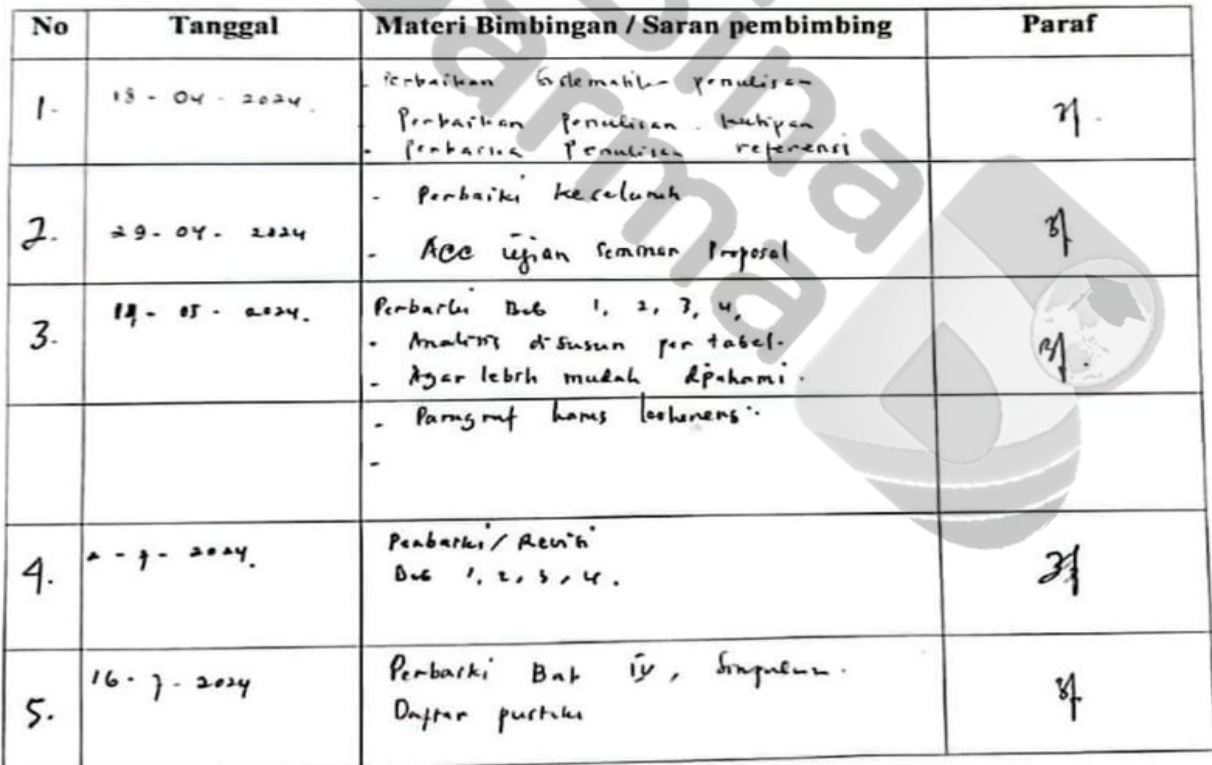 No Tanggal Materi Bimbingan / Saran pembimbing Paraf
1. 18 - 04 - 2024. - Perbaikan Sistematika penulisan
- Perbaikan Penulisan kutipan
- Perbaikan Penulisan referensi
2. 29 - 04 - 2024 - Perbaiki keseluruh
- ACC ujian Seminar Proposal
3. 05 - 2024. Perbaiki Bab 1, 2, 3, 4,
- Analisis disusun per tabel.
- Agar lebih mudah dipahami.
- Paragraf harus
-
4. 2024. Perbaiki / Revisi
Bab 1, 2, 3, 4.
5. 16 - 7 - 2024 Perbaiki Bab IV, Simpulan.
Daftar pustaka
bina
arma